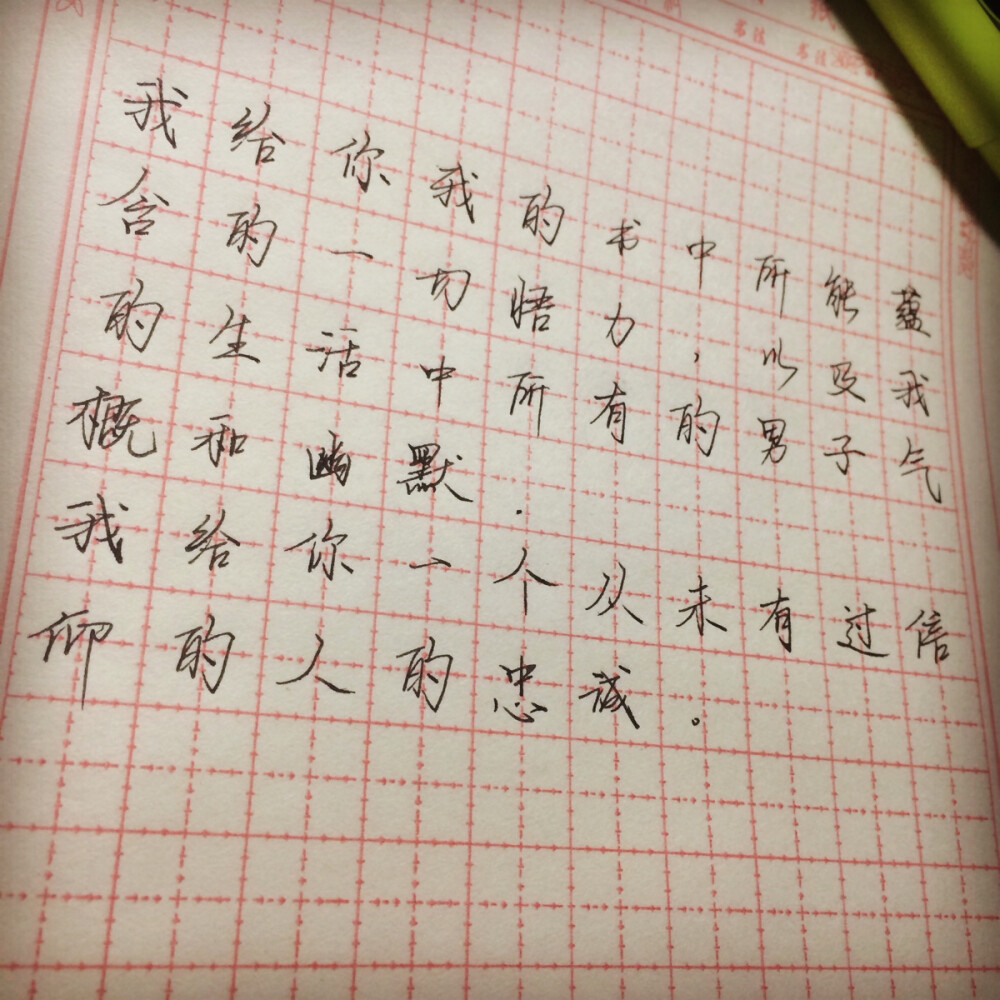 书法 书法
我给你我的书中所能蕴
含的一切悟力,以及我
的生活中所有的男子气
概和幽默.
我给你一个从未有过信
仰的人的忠诚。